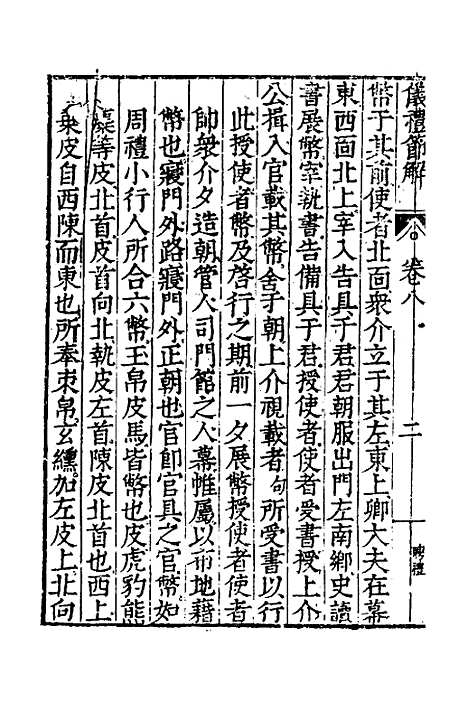 儀禮節解 卷八 二 聘禮
幣于其前使者北面衆介立于其左東上卿大夫在幕
東西面北上宰入告具于君君朝服出門左南鄉史讀
書展幣宰執書告備具于君授使者使者受書授上介
公揖入官載其幣舍于朝上介視載者句所受書以行
此授使者幣及啓行之期前一夕展幣授使者使者
帥衆介夕造朝管人司門館之人幕帷屬以布地藉
幣也寢門外路寢門外正朝也官卽官具之官幣如
周禮小行人所合六幣玉帛皮馬皆幣也皮虎豹熊
麋等皮北首皮首向北執皮左首陳皮北首也西上
衆皮自西陳而東也所奉束帛玄纁加左皮上北向